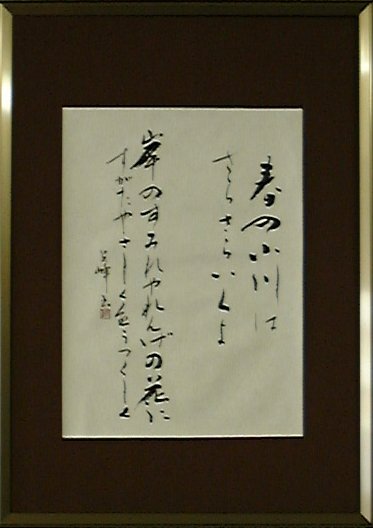 春の小川は
さらさらいくよ
岸のすみれやれんげの花に
すがたやさしく色うつくしく